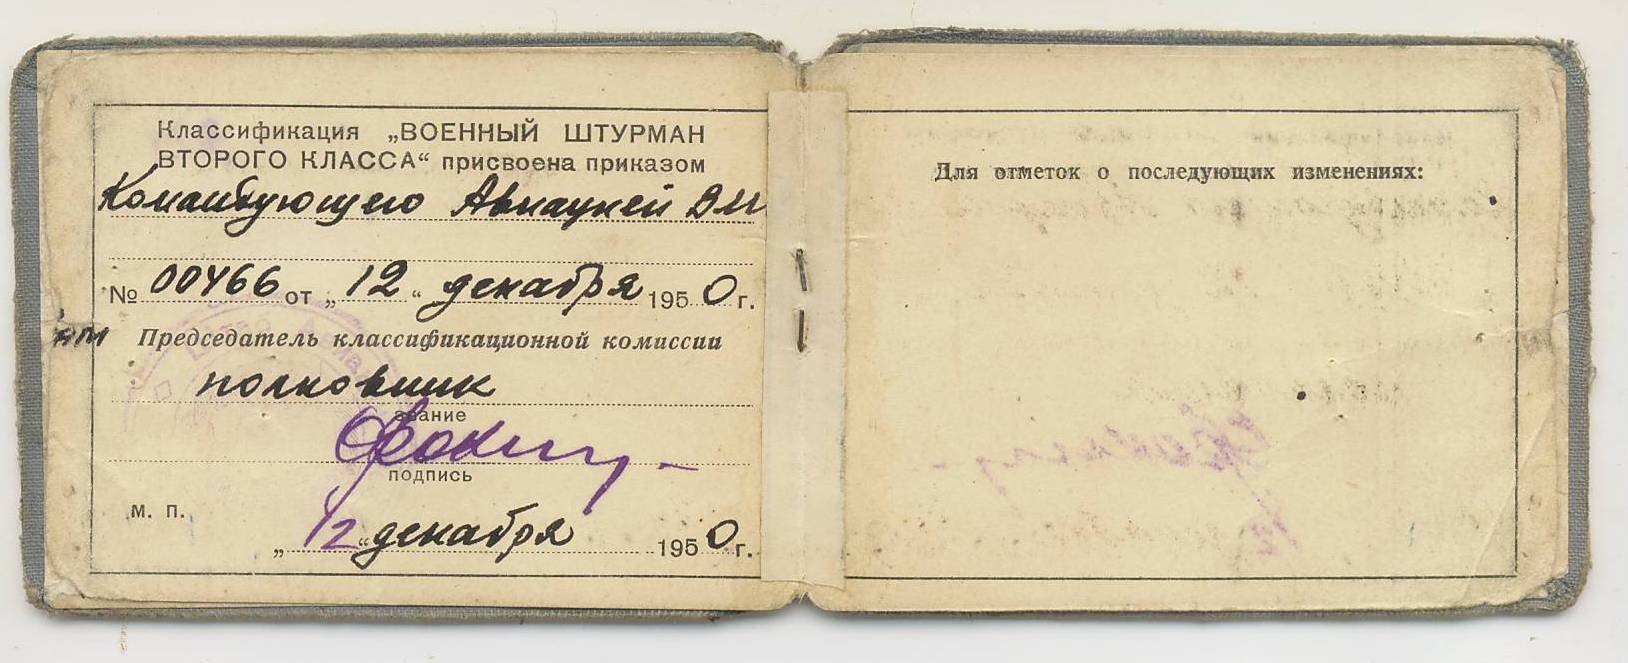 Классификация „ВОЕННЫЙ ШТУРМАН
ВТОРОГО КЛАССА“ присвоена приказом
Командующего Авиацией ВМ
№ 00466 от „12“ декабря 1950 г.
Председатель классификационной комиссии
полковник
звание
подпись
м. п.
„12“ декабря 1950 г.
Для отметок о последующих изменениях: